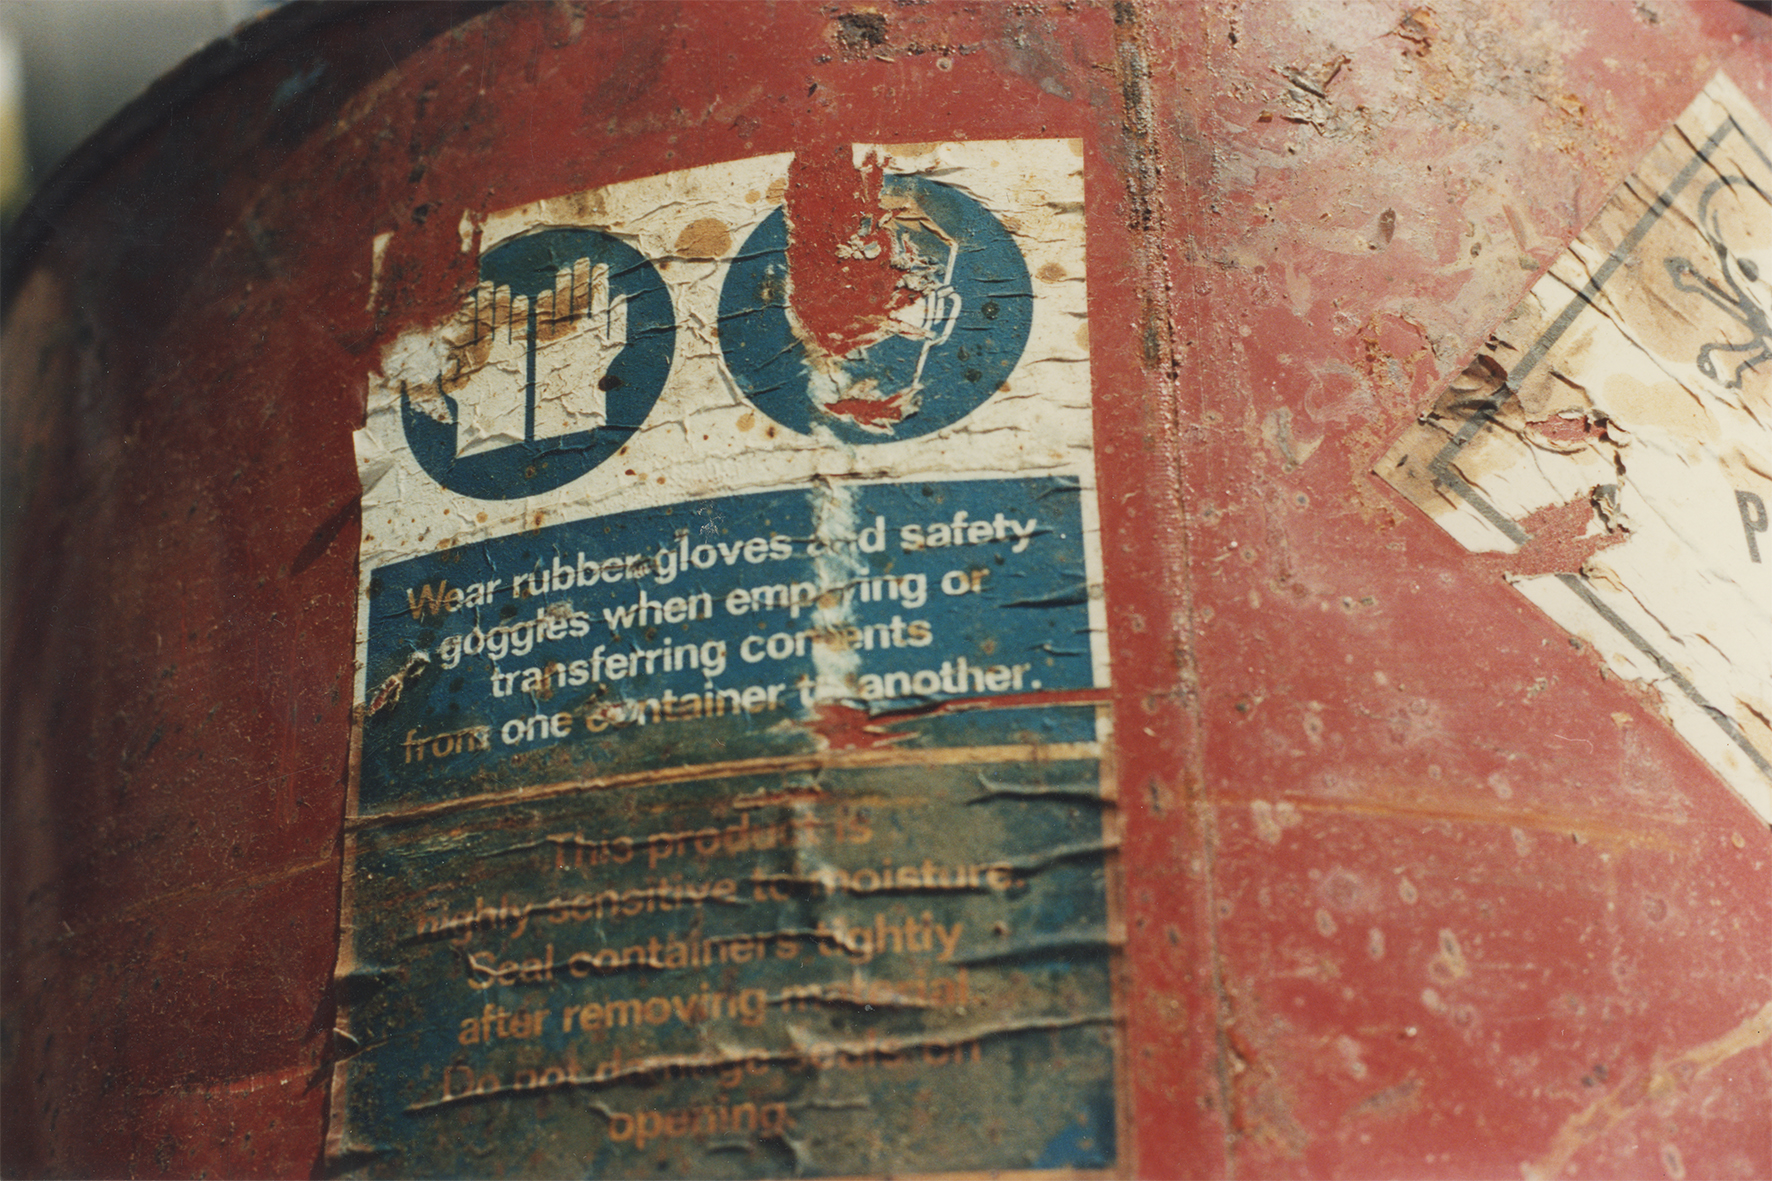 Wear rubber gloves and safety
goggles when emptying or
transferring contents
from one container to another.
This product is
highly sensitive to moisture.
Seal containers tightly
after removing material.
Do not damage seals on
opening.
P